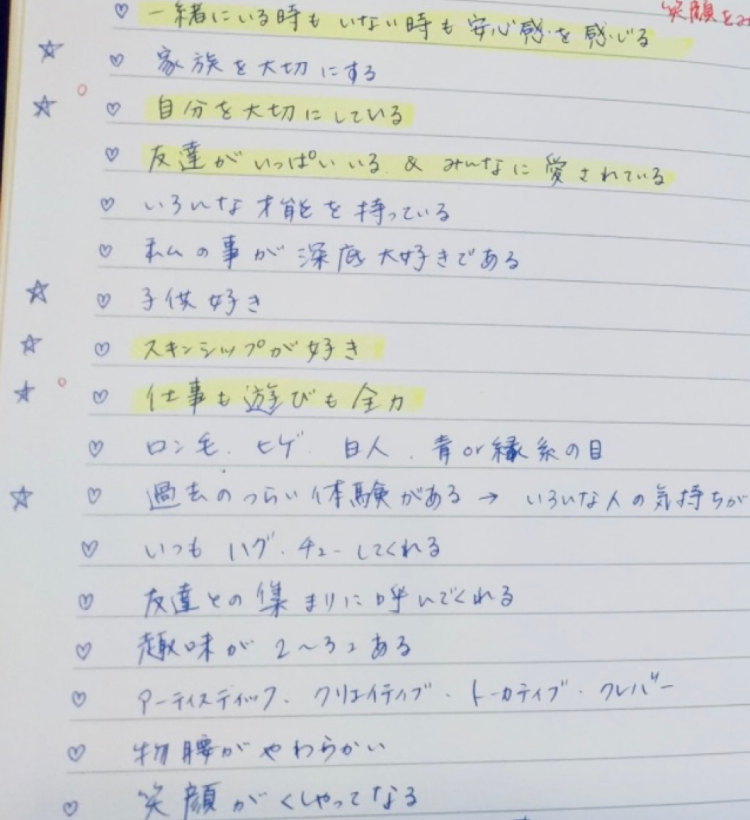 笑顔を
♡ 一緒にいる時も いない時も 安心感を 感じる
☆ ♡ 家族を大切にする
☆ ♡ 自分を大切にしている
♡ 友達が いっぱい いる & みんなに 愛されている
♡ いろいんな才能を持っている
♡ 私の事が 深底大好きである
☆ ♡ 子供好き
☆ ♡ スキンシップが好き
☆ ♡ 仕事も遊びも全力
♡ ロン毛. ヒゲ. 白人. 青or緑系の目
☆ ♡ 過去のつらい体験がある → いろいな人の気持ちが
♡ いつも ハグ・チューしてくれる
♡ 友達との集まりに呼んでくれる
♡ 趣味が 2〜3つある
♡ アーティスティック・クリエイティブ・トーカティブ・クレバー
♡ 物腰がやわらかい
♡ 笑顔がくしゃってなる